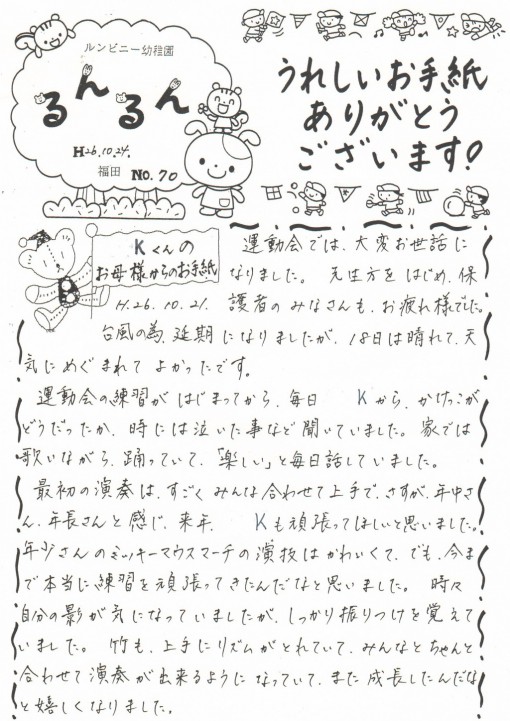 ルンビニー幼稚園
るんるん
H26.10.24.
福田 No.70
うれしいお手紙
ありがとう
ございます!
Kくんの
お母様からのお手紙
H.26.10.21.
運動会では、大変お世話に
なりました。 先生方をはじめ、保
護者のみなさんも、お疲れ様でした。
台風の為、延期になりましたが、18日は晴れて、天
気にめぐまれてよかったです。
運動会の練習がはじまってから、毎日 Kから、かけっこが
どうだったか、時には泣いた事など聞いていました。 家では
歌いながら、踊っていて、「楽しい」と毎日話していました。
最初の演奏は、すごくみんな合わせて上手で、さすが、年中さ
ん、年長さんと感じ、来年、 Kも頑張ってほしいと思いました。
年少さんのミッキーマウスマーチの演技はかわいくて、でも、今ま
で本当に練習を頑張ってきたんだなと思いました。 時々
自分の影が気になっていましたが、しっかり振りつけを覚えて
いました。 竹も、上手にリズムがとれていて、みんなとちゃんと
合わせて演奏が出来るようになっていて、また成長したんだな
と嬉しくなりました。